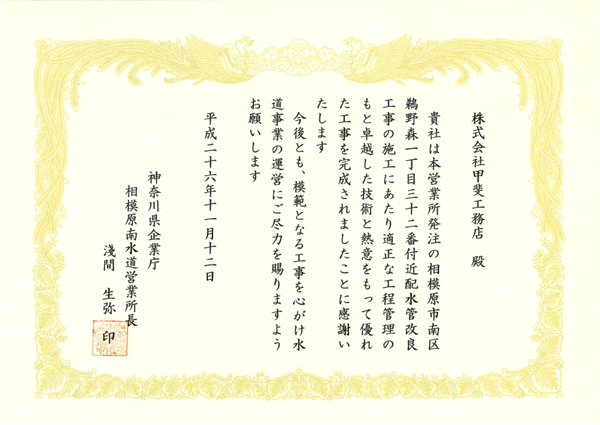 株式会社甲斐工務店 殿
貴社は本営業所発注の相模原市南区
鵜野森一丁目三十二番付近配水管改良
工事の施工にあたり適正な工程管理の
もと卓越した技術と熱意をもって優れ
た工事を完成されましたことに感謝い
たします
今後とも、模範となる工事を心がけ水
道事業の運営にご尽力を賜りますよう
お願いします
平成二十六年十一月十二日
神奈川県企業庁
相模原南水道営業所長
浅間 生弥 印